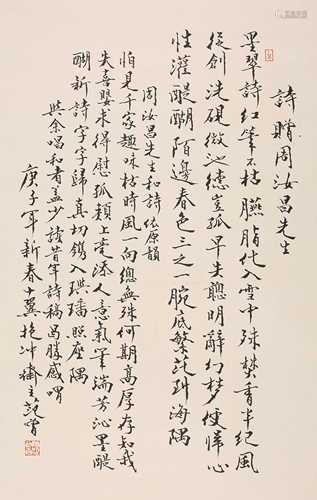 詩贈周汝昌先生
墨翠詩紅筆不枯胭脂化入雪中殊焚香半紀風
從劍洗硯微池德豈孤早失聰明辭幻夢便歸心
性灌醍醐陌邊春色三之一腕底繁花到海隅
周汝昌先生和詩依原韻
怕見千家趣味枯時風一向總無殊何期高厚存知我
失喜嬰求得慰孤頰上毫添人意氣筆端芳沁墨醍
醐新詩字字歸真切鐫入璵璠照座隅
與余唱和者孟少讀昔年詩稿曷勝感喟
庚子年新春十翼抱沖齋主范曾